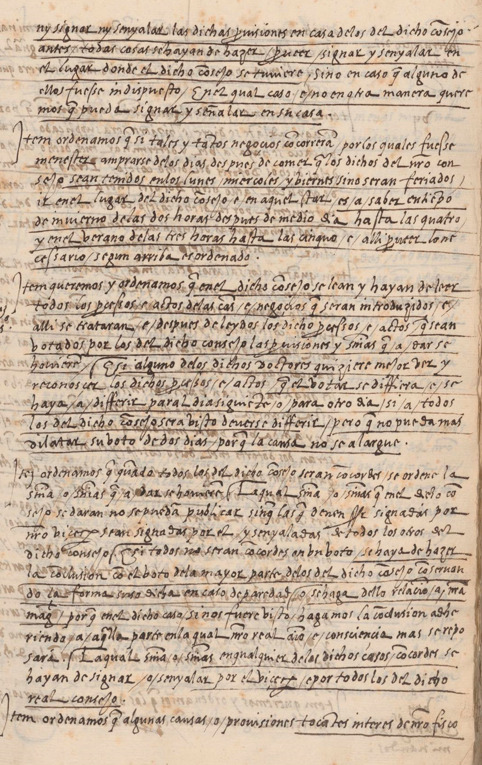 ny signar ny senyalar las dichas puisiones en casa delos del dicho cosejo
antes todas cosas se hayan de hazer / pueer / signar y senyalar en
el lugar donde el dicho cosejo se tuviere / sino en caso q̃ alguno de
ellos fuesse indispuesto / En el qual caso / e no en otra manera quere
mos q̃ pueda signar y señalar en su casa.
Item ordenamos q̃ si tales y tãtos negocios cõcorrerã por los quales fuesse
menester amprarse delos dias despues de comer q̃ los dichos del nr̃o con
sejo sean tenidos enlos lunes / miercoles / y biernes si no seran feriados
ir en el lugar del dicho cosejo e en aquel star / es / a saber en tiẽpo
de invierno de las dos horas despues de medio dia hasta las quatro
y en el verano de las tres horas hasta las cinquo / e / alli pueer lo ne
cessario / segun arriba es ordenado.
Item queremos y ordenamos q̃ en el dicho cõsejo se lean y hayan de leer
todos los pcessos e actos de las cãs / e / negocios q̃ seran introduzidos / e
alli se trataran / e / despues de leydos los dichos pcessos e actos q̃ sean
votados por los del dicho consejo las puisiones y sñias q̃ a / dar se
hovieren / E si alguno delos dichos doctores quiziere mejor ver y
reconoscer los dichos pcessos / e / actos q̃ el votar se differa e / se
haya / a / differir paral dia siguiẽte / o / para otro dia / si / a / todos
los del dicho cosejo sera visto deverse differir / pero q̃ no pueda mas
dilatar su voto de dos dias / porq̃ la causa no se alargue.
Itẽ ordenamos q̃ quãdo todos los del dicho cosejo serán cõcordes / se ordene la
sñia / o / sñias q̃ a / dar se hovieren / La qual sñia / o / sñias q̃ en el dicho cõ
sejo se daran no se pueda publicar sin q̃ las q̃ deven signadas por
nr̃o vicex̃ / sean signadas por el / y senyaladas de todos los otros del
dicho consejo / E si todos no seran cõcordes en hũ voto / se haya de hazer
la cõclusion cõ el voto de la mayor parte delos del dicho cosejo cõservan
do la forma suso dicha / en caso de paredad / o / se haga dello relaciõ / a / nr̃a
mag̃. / porq̃ en el dicho caso / si nos fuere visto / hagamos la cõclusion adhe
riendo / a / aq̃lla parte en la qual nr̃o real aĩo / e / consciencia mas se repo
sará / La qual sñia / o / sñias en qualquier delos dichos casos / cõcordes se
hayan de signar / o / senyalar por el vicex̃ / e por todos los del dicho
real consejo.
Item ordenamos q̃ algunas causas / o / provisiones tocãtes interes de nr̃o fisco